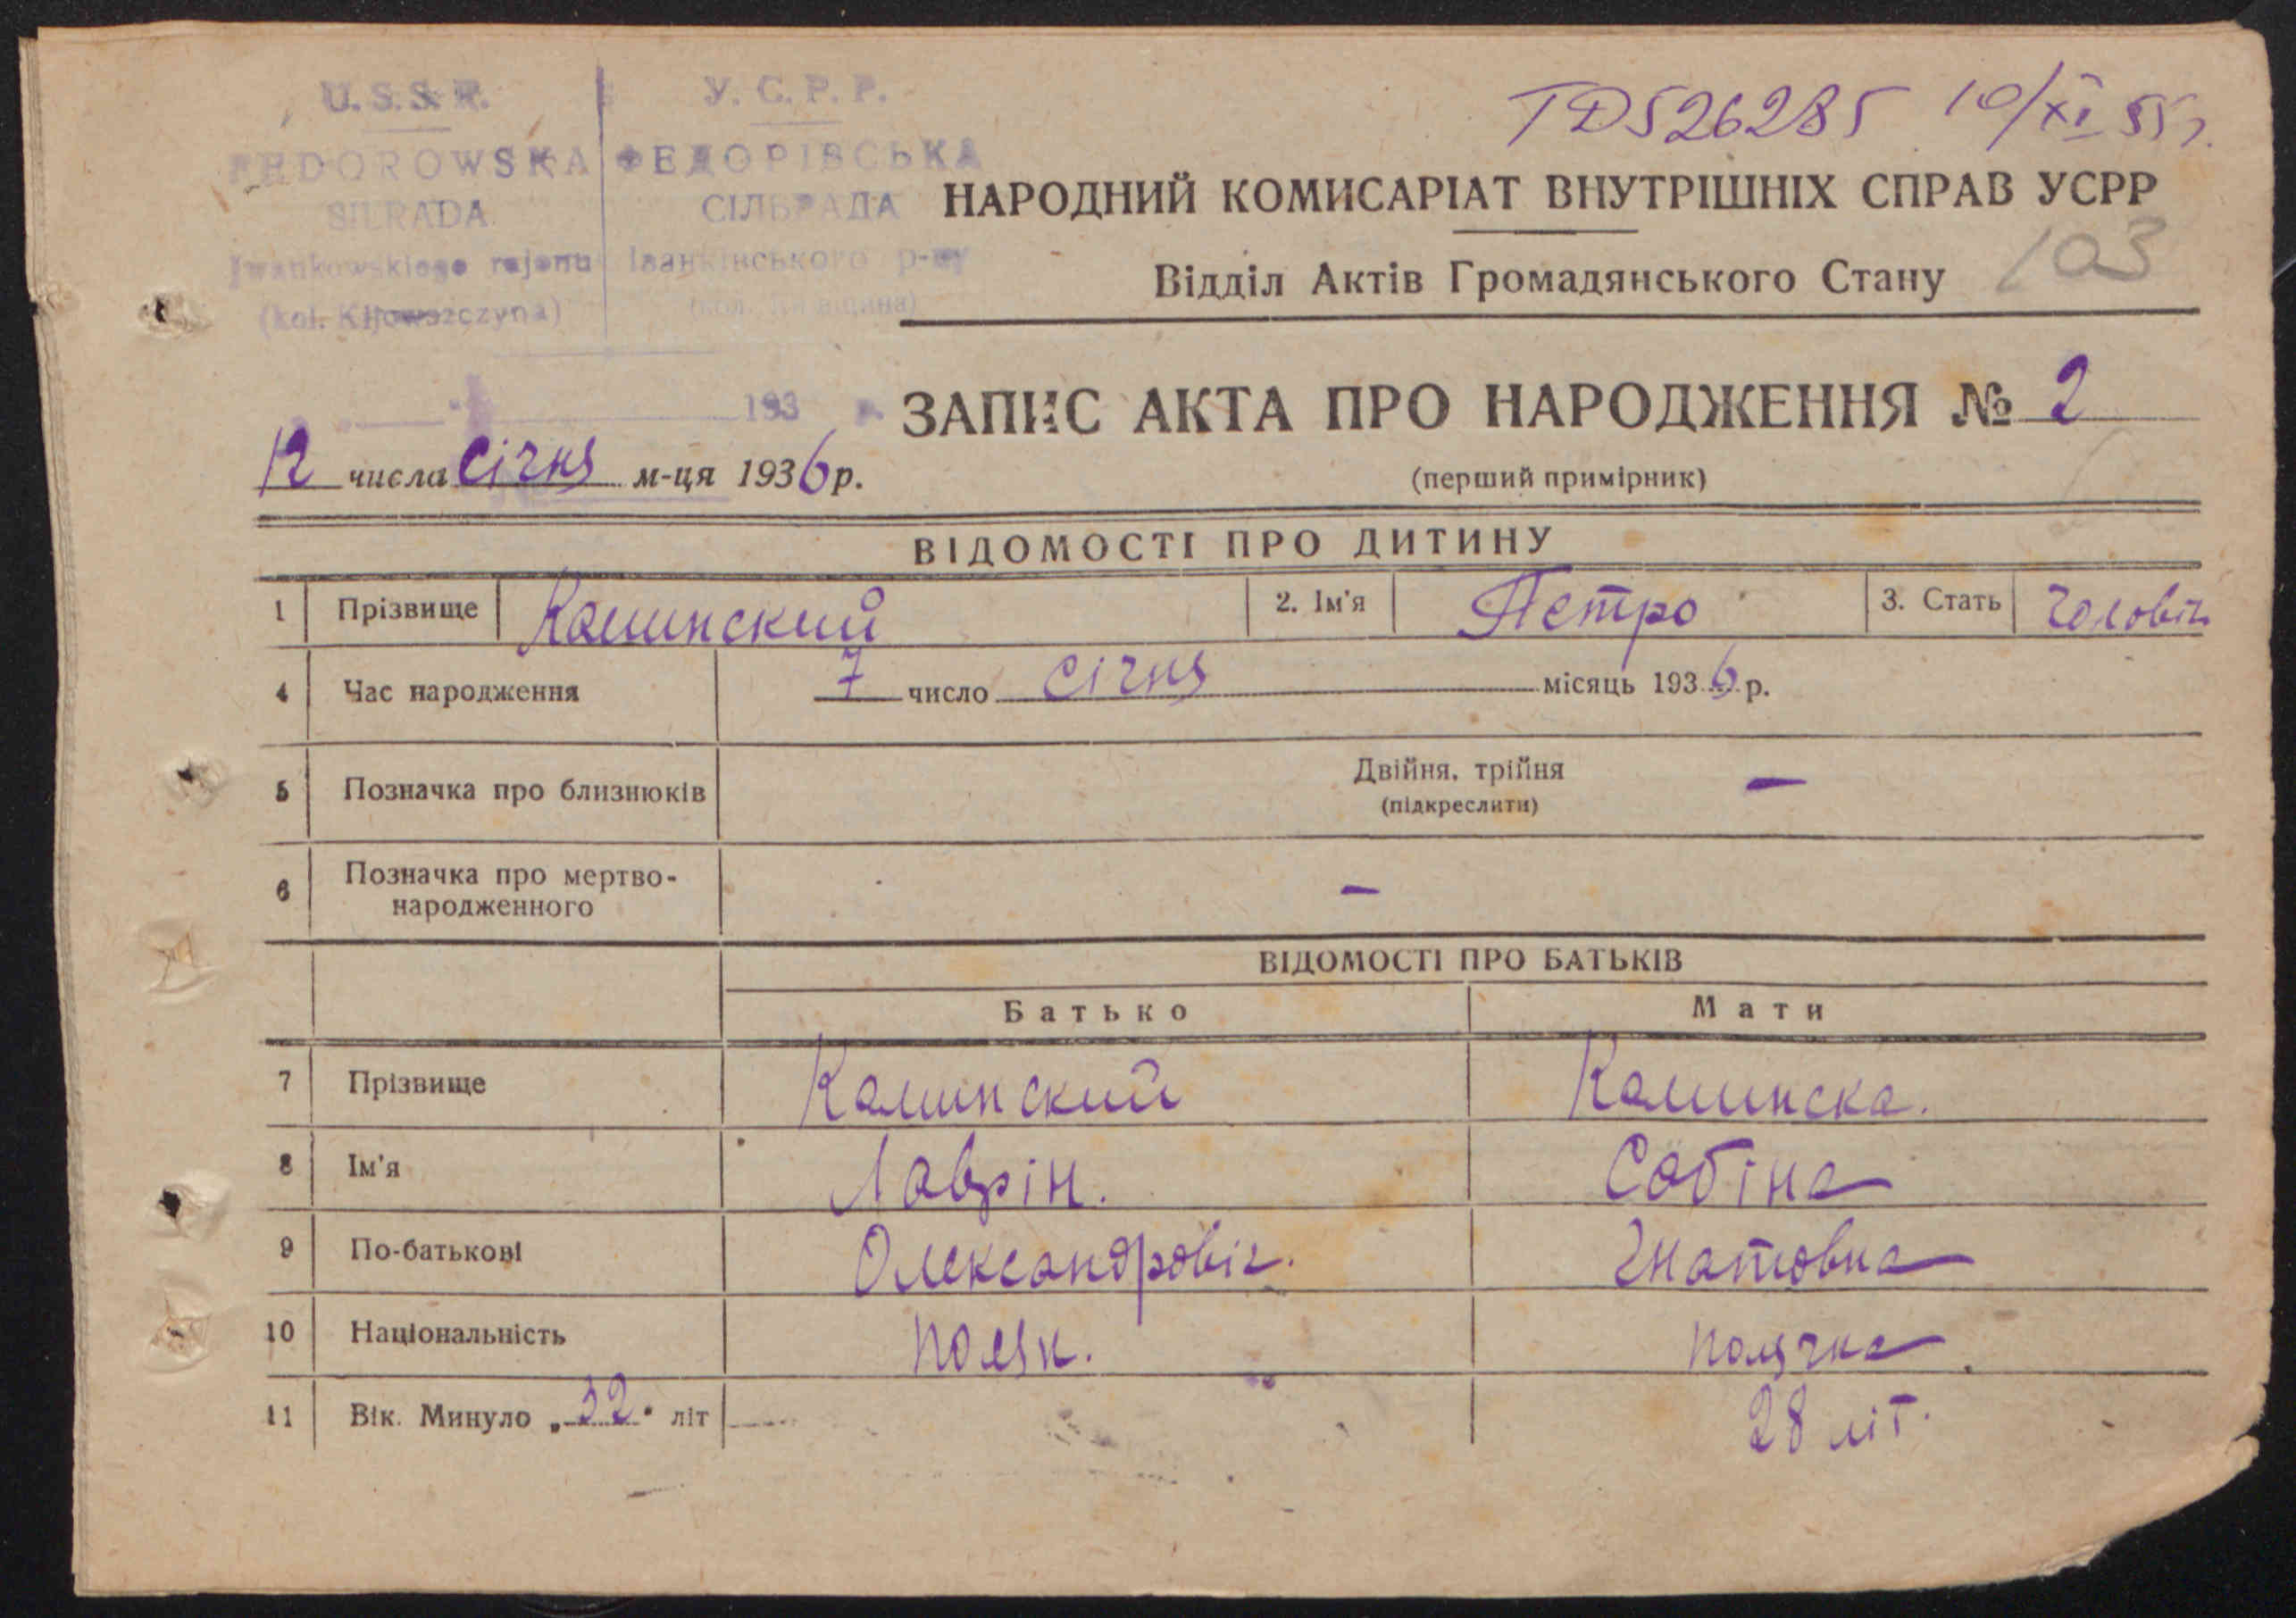 U.S.S.R.
У.С.Р.Р.
FEDOROWSKA
ФЕДОРІВСЬКА
SILRADA
СІЛЬРАДА
Iwankowskiego rejonu
Іванківського р-ну
(kol. Kijowszczyna)
(кол. Київщина)
193 р.
ТД526285 10/XI 55г.
НАРОДНИЙ КОМИСАРІАТ ВНУТРІШНІХ СПРАВ УСРР
103
Відділ Актів Громадянського Стану
ЗАПИС АКТА ПРО НАРОДЖЕННЯ № 2
12 числа січня м-ця 1936 р.
(перший примірник)
ВІДОМОСТІ ПРО ДИТИНУ
1 Прізвище Калинский 2. Ім'я Петро 3. Стать Чоловіч
4 Час народження 7 число січня місяць 1936 р.
5 Позначка про близнюків Двійня, трійня —
(підкреслити)
6 Позначка про мертво-
народженного —
ВІДОМОСТІ ПРО БАТЬКІВ
Батько Мати
7 Прізвище Калинский Калинска.
8 Ім'я Лаврін. Сабіна
9 По-батькові Олександровіч. Гнатовна
10 Національність поляк. полячка
11 Вік. Минуло „32" літ 28 літ.